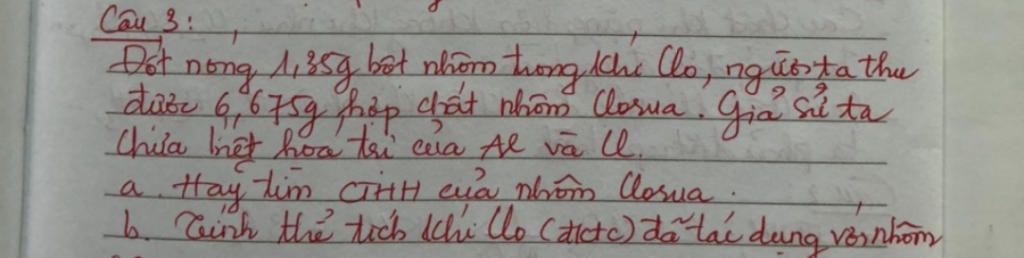 Câu 3:
Đốt nóng 1,35g bột nhôm trong khí Clo, người ta thu
được 6,675g hợp chất nhôm Clorua. Giả sử ta
Chưa biết hóa trị của Al và Cl.
a. Hãy tìm CTHH của nhôm Clorua.
b. Tính thể tích khí Clo (đktc) đã tác dụng với nhôm